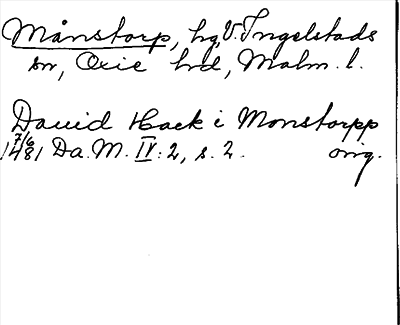 Månstorp, hg, V. Ingelstads
sn, Oxie hrd, Malm. l.
David Hack i Monstorpp
7/6
1481 Da. M. IV: 2, s. 2. orig.